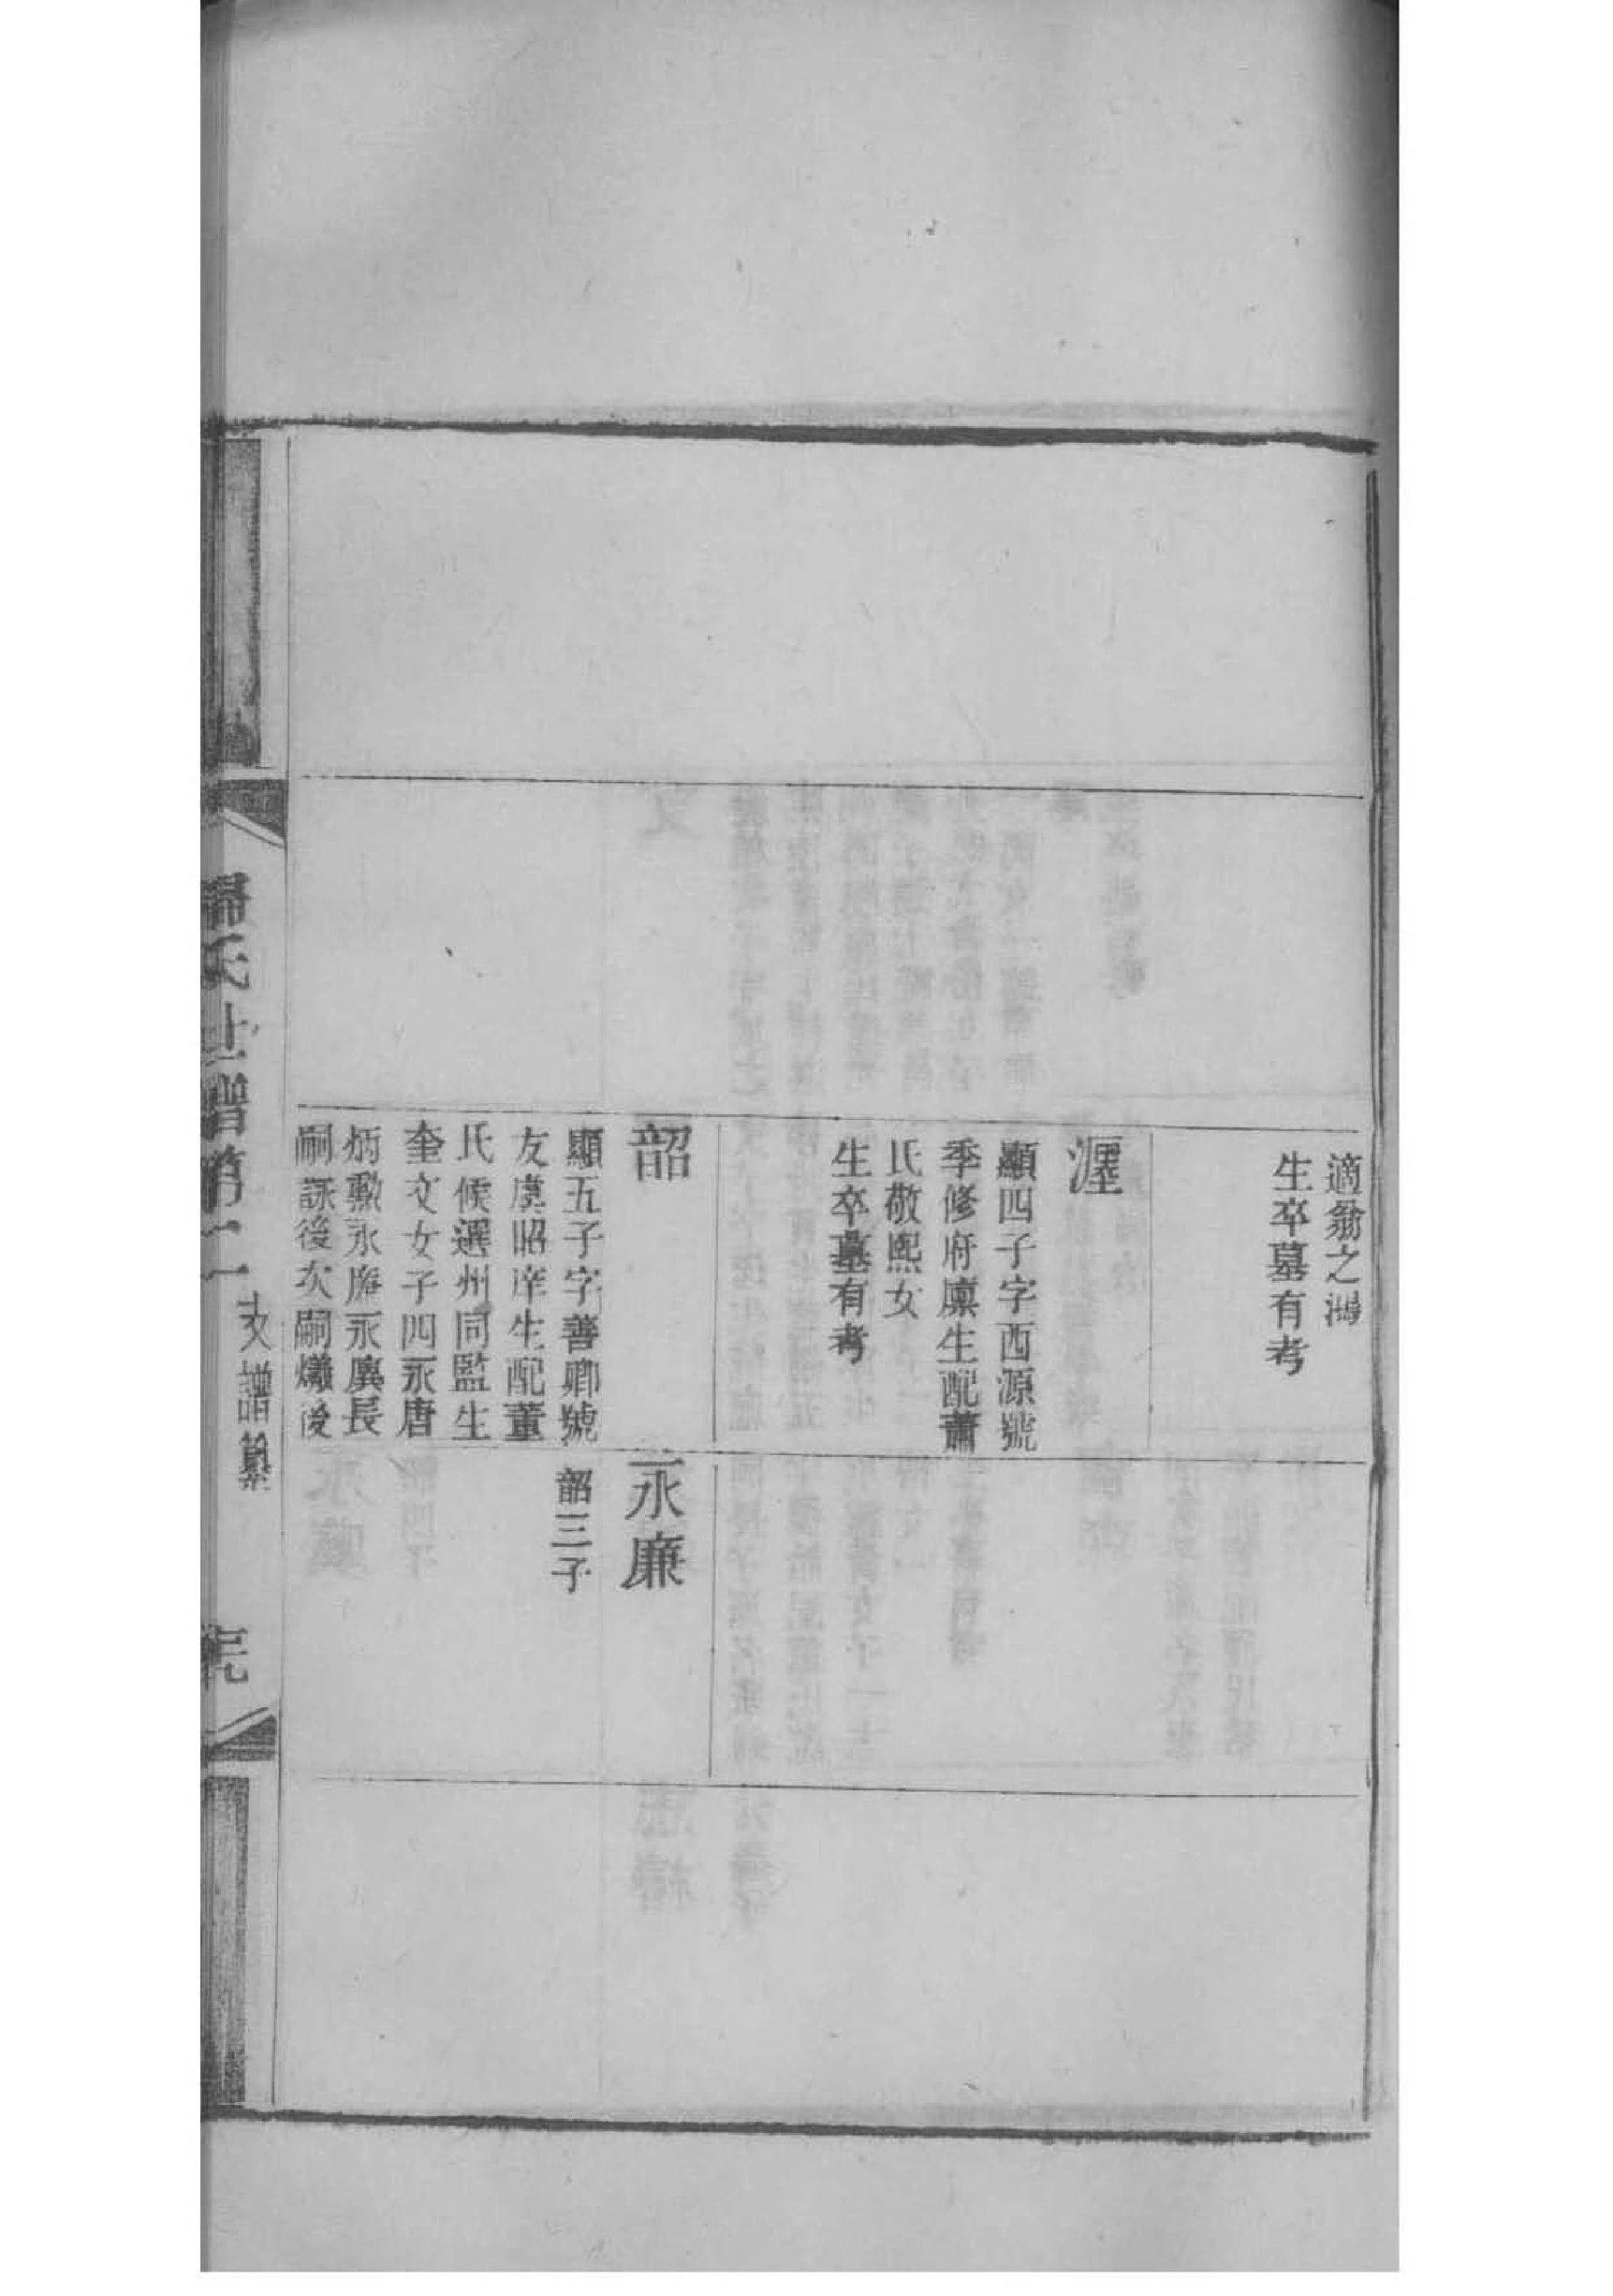 適翁之鴻
生卒墓有考
湮
顯四子字西源號
季修府廩生配蕭
氏敬熙女
生卒墓有考
韶
顯五子字善卿號
友虞昭庠生配董
氏候選州同監生
奎文女子四永唐
炳勲永廉永廙長
嗣詠後次嗣爔後
永廉
韶三子
歸氏世譜第二
支譜纂